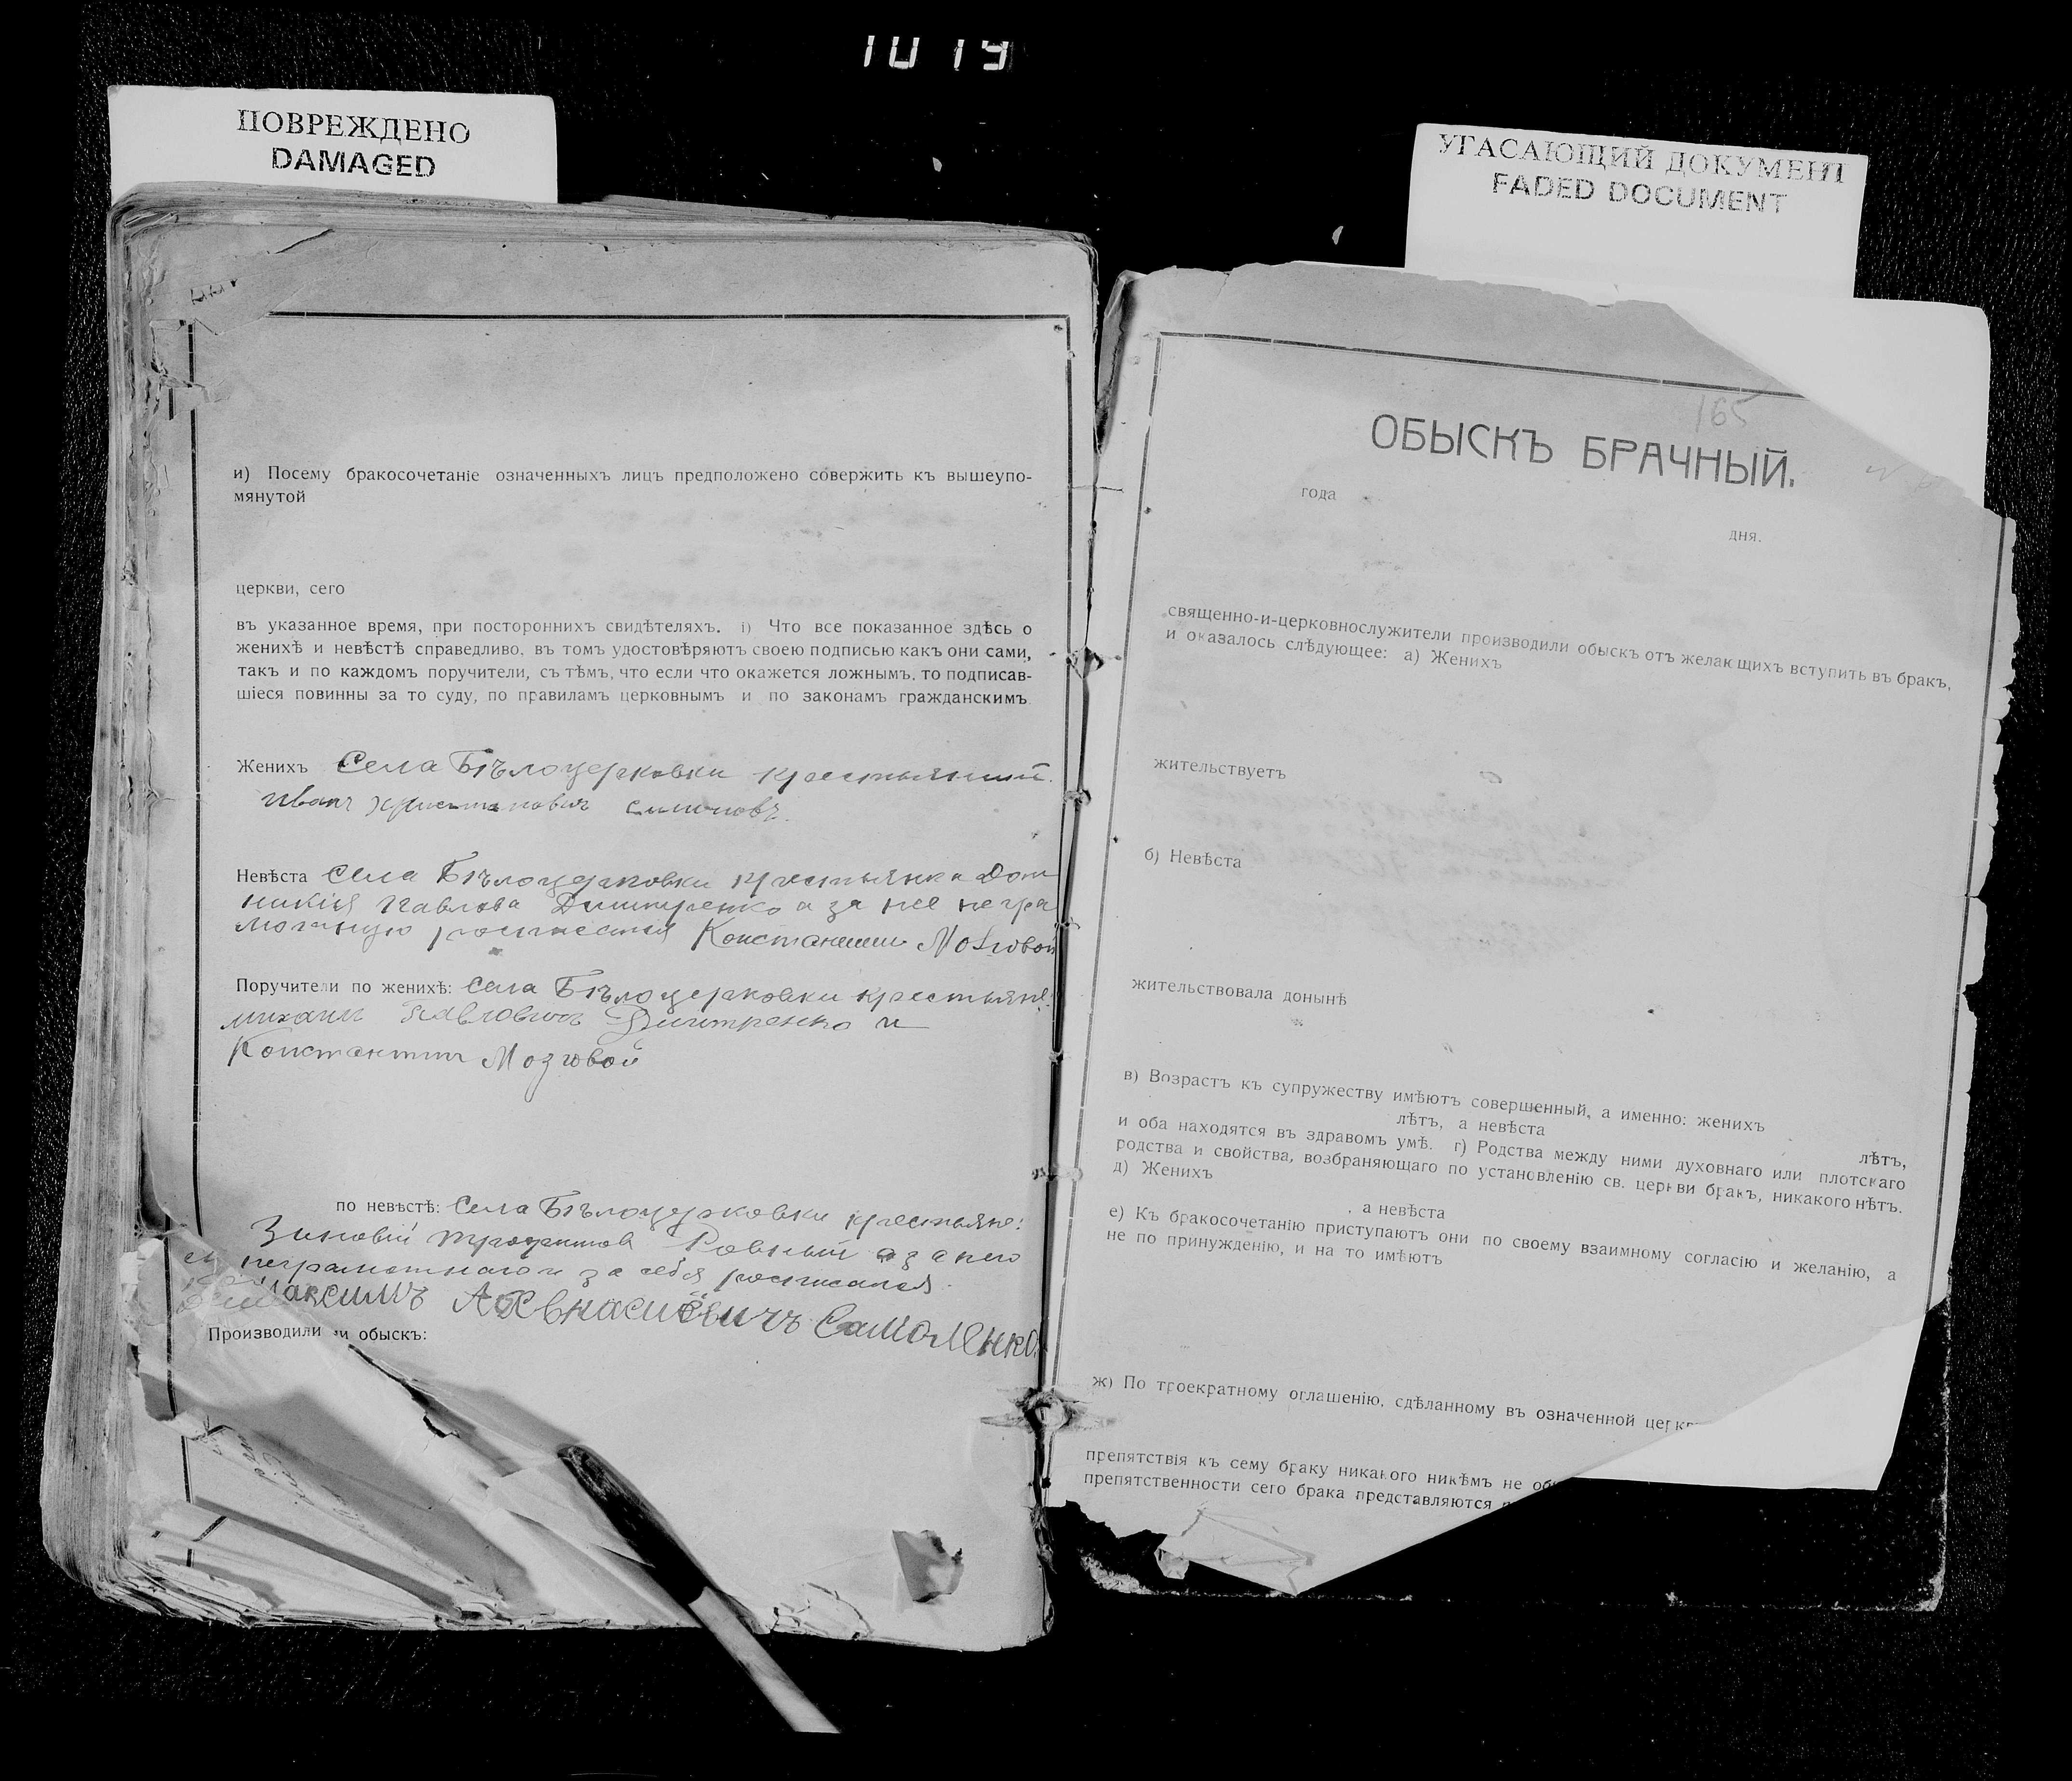 1019
ПОВРЕЖДЕНО
DAMAGED
УГАСАЮЩИЙ ДОКУМЕНТ
FADED DOCUMENT
и) Посему бракосочетаніе означенныхъ лицъ предположено совержить къ вышеупо-
мянутой
церкви, сего
въ указанное время, при постороннихъ свидѣтеляхъ. і) Что все показанное здѣсь о
женихѣ и невѣстѣ справедливо, въ томъ удостовѣряютъ своею подписью какъ они сами,
такъ и по каждомъ поручители, съ тѣмъ, что если что окажется ложнымъ, то подписав-
шіеся повинны за то суду, по правиламъ церковнымъ и по законамъ гражданскимъ
Женихъ Села Бѣлоцерковки крестьянинъ
Иванъ
Невѣста Села Бѣлоцерковки крестьянка Дом
никія Павлова Димитренко а за нее негра
мотную росписался Константинъ Мозговой
Поручители по женихѣ: Села Бѣлоцерковки крестьяне:
Михаилъ Павловичъ Димитренко и
Константинъ Мозговой
по невѣстѣ: Села Бѣлоцерковки крестьяне:
Зиновій Ровный а за него
неграмотнаго и за себя росписался
Максимъ Самойленко
Производили обыскъ:
165
ОБЫСКЪ БРАЧНЫЙ.
года
дня.
священно-и-церковнослужители производили обыскъ отъ желающихъ вступить въ бракъ,
и оказалось слѣдующее: а) Женихъ
жительствуетъ
б) Невѣста
жительствовала донынѣ
в) Возрастъ къ супружеству имѣютъ совершенный, а именно: женихъ
лѣтъ, а невѣста лѣтъ,
и оба находятся въ здравомъ умѣ. г) Родства между ними духовнаго или плотскаго
родства и свойства, возбраняющаго по установленію св. церкви бракъ, никакого нѣтъ.
д) Женихъ
а невѣста
е) Къ бракосочетанію приступаютъ они по своему взаимному согласію и желанію, а
не по принужденію, и на то имѣютъ
ж) По троекратному оглашенію, сдѣланному въ означенной церкв
препятствія къ сему браку никакого никѣмъ не об
препятственности сего брака представляются